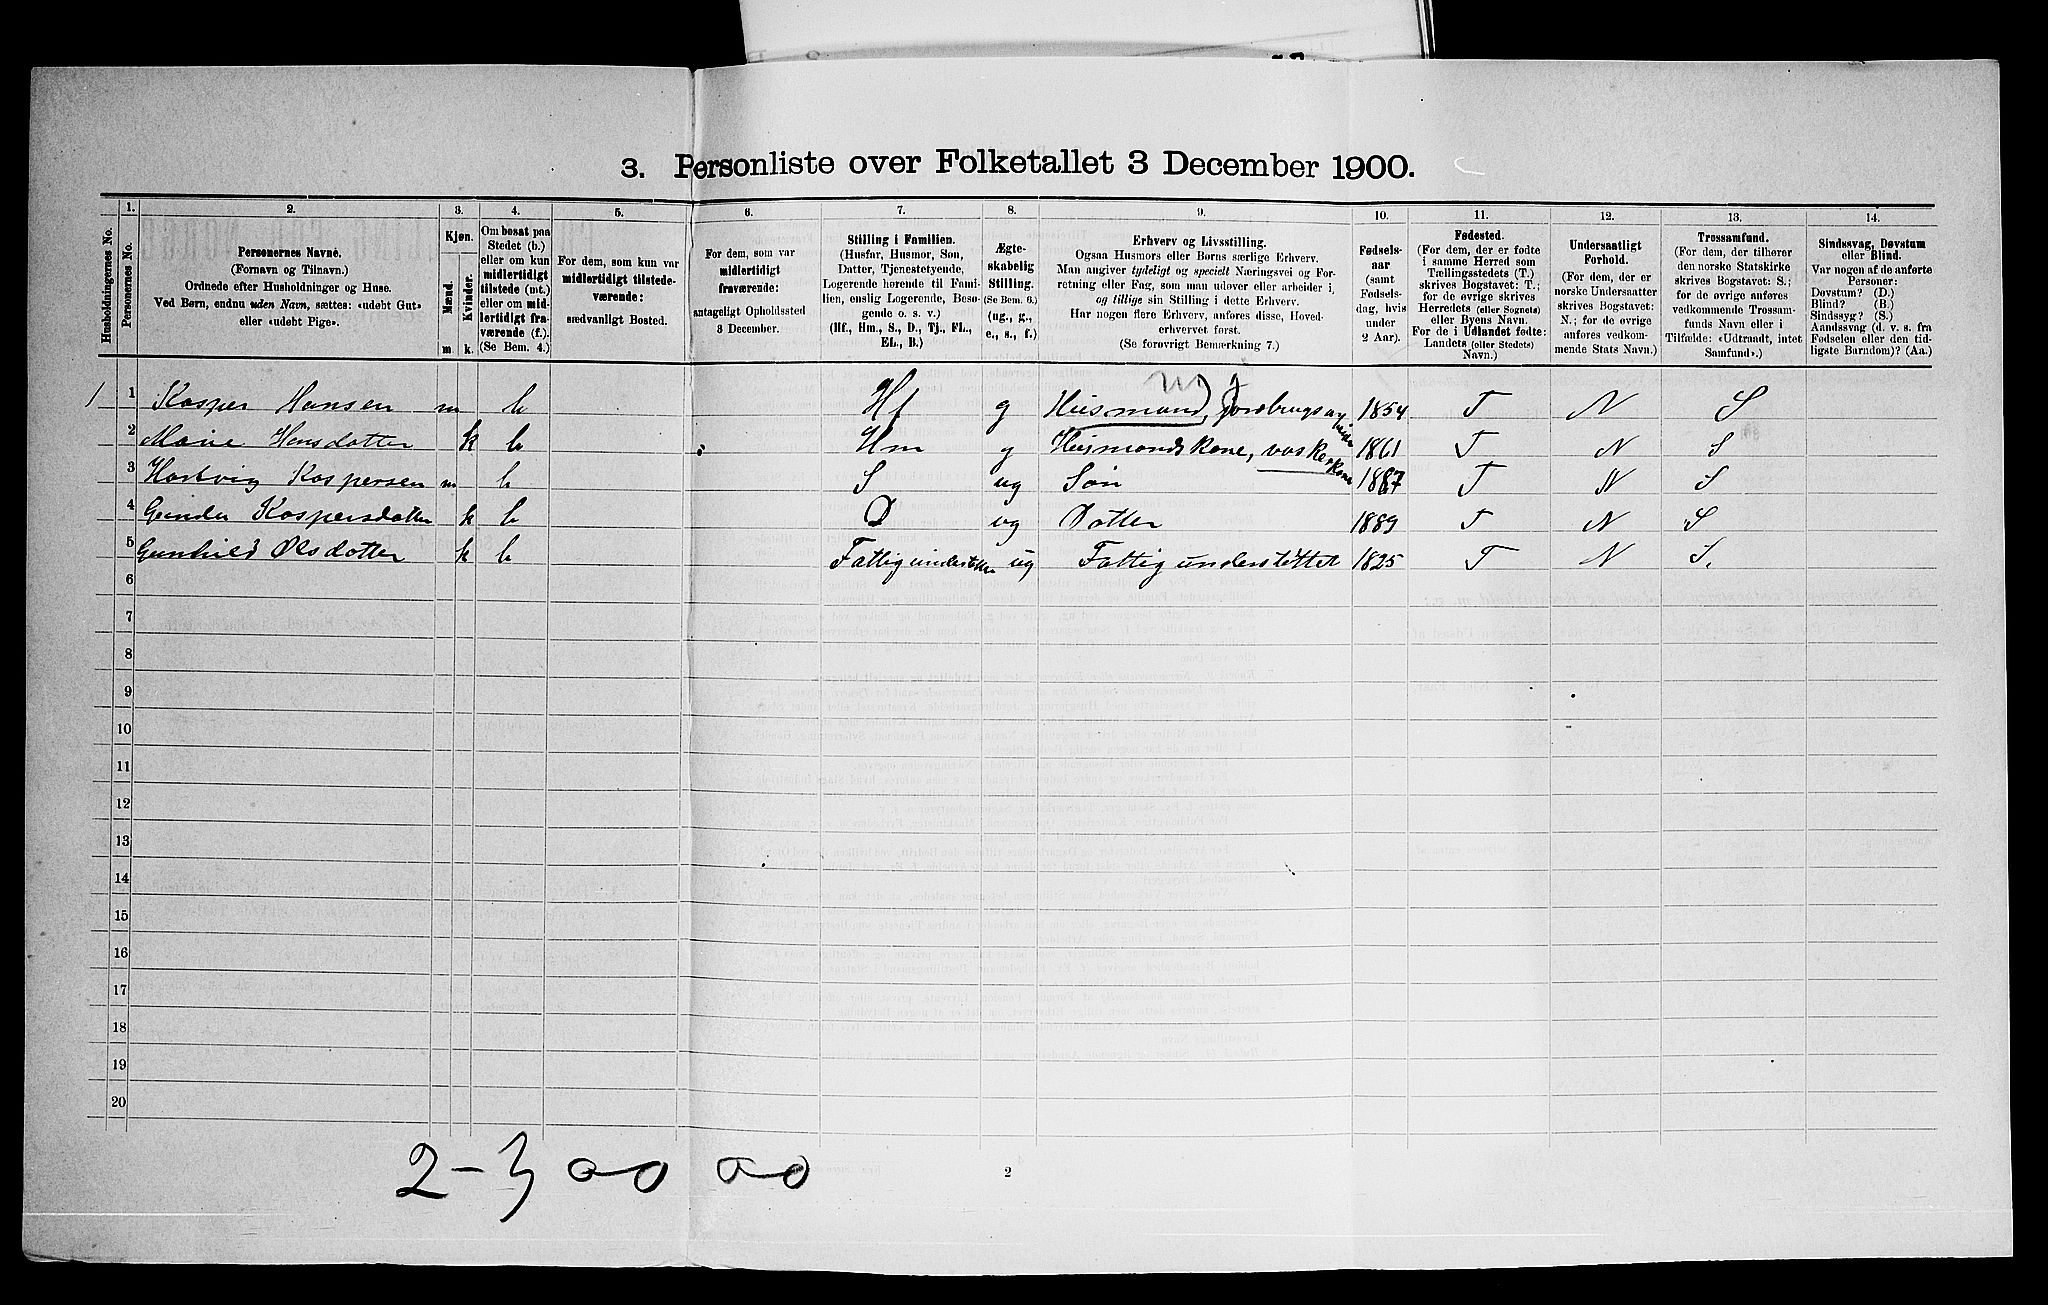 3. Personliste over Folketallet 3 December 1900.
1. 2. 3. 4. 5. 6. 7. 8. 9. 10. 11. 12. 13. 14.
Husholdningernes No.
Personernes No.
Personernes Navne.
(Fornavn og Tilnavn.)
Ordnede efter Husholdninger og Huse.
Ved Børn, endnu uden Navn, sættes: «udøbt Gut»
eller «udøbt Pige».
Kjøn.
Mænd.
Kvinder.
m. k.
Om bosat paa
Stedet (b.)
eller om kun
midlertidigt
tilstede (mt.)
eller om mid-
lertidigt fra-
værende (f.).
(Se Bem. 4.)
For dem, som kun var
midlertidigt tilstede-
værende:
sædvanligt Bosted.
For dem, som var
midlertidigt
fraværende:
antageligt Opholdssted
3 December.
Stilling i Familien.
(Husfar, Husmor, Søn,
Datter, Tjenestetyende,
Logerende hørende til Fami-
lien, enslig Logerende, Besø-
gende o. s. v.)
(Hf., Hm., S., D., Tj., FL.,
EL., B.)
Ægte-
skabelig
Stilling.
(Se Bem. 6.)
(ug., g.,
e., s., f.)
Erhverv og Livsstilling.
Ogsaa Husmors eller Børns særlige Erhverv.
Man angiver tydeligt og specielt Næringsvei og For-
retning eller Fag, som man udøver eller arbeider i,
og tillige sin Stilling i dette Erhverv.
Har nogen flere Erhverv, anføres disse, Hoved-
erhvervet først.
(Se forøvrigt Bemærkning 7.)
Fødsels-
aar
(samt
Fødsels-
dag, hvis
under
2 Aar).
Fødested.
(For dem, der er fødte
i samme Herred som
Tællingsstedets (T.)
skrives Bogstavet: T.;
for de øvrige skrives
Herredets (eller Sognets)
eller Byens Navn.
For de i Udlandet fødte:
Landets (eller Stedets)
Navn.)
Undersaatligt
Forhold.
(For dem, der er
norske Undersaatter
skrives Bogstavet:
N.; for de øvrige
anføres vedkom-
mende Stats Navn.)
Trossamfund.
(For dem, der tilhører
den norske Statskirke
skrives Bogstavet: S.;
for de øvrige anføres
vedkommende Trossam-
funds Navn eller i
Tilfælde: «Udtraadt, intet
Samfund».)
Sindssvag, Døvstum
eller Blind.
Var nogen af de anførte
Personer:
Døvstum? (D.)
Blind? (B.)
Sindssyg? (S.)
Aandssvag (d. v. s. fra
Fødselen eller den tid-
ligste Barndom)? (Aa.)
1 1 Kasper Hansen m b Hf g Husmand, Jordbrugsarbeider 1854 T N S
2 Marie Hansdatter k b Hm g Husmandskone, vaskerkone 1861 T N S
3 Hartvig Kaspersen m b S ug Søn 1887 T N S
4 Gunda Kaspersdatter k b D ug Datter 1889 T N S
5 Gunhild Olsdatter k b Fattigunderstøttet ug Fattigunderstøttet 1825 T N S.
6
7
8
9
10
11
12
13
14
15
16
17
18
19
20
2-3 00 00
2